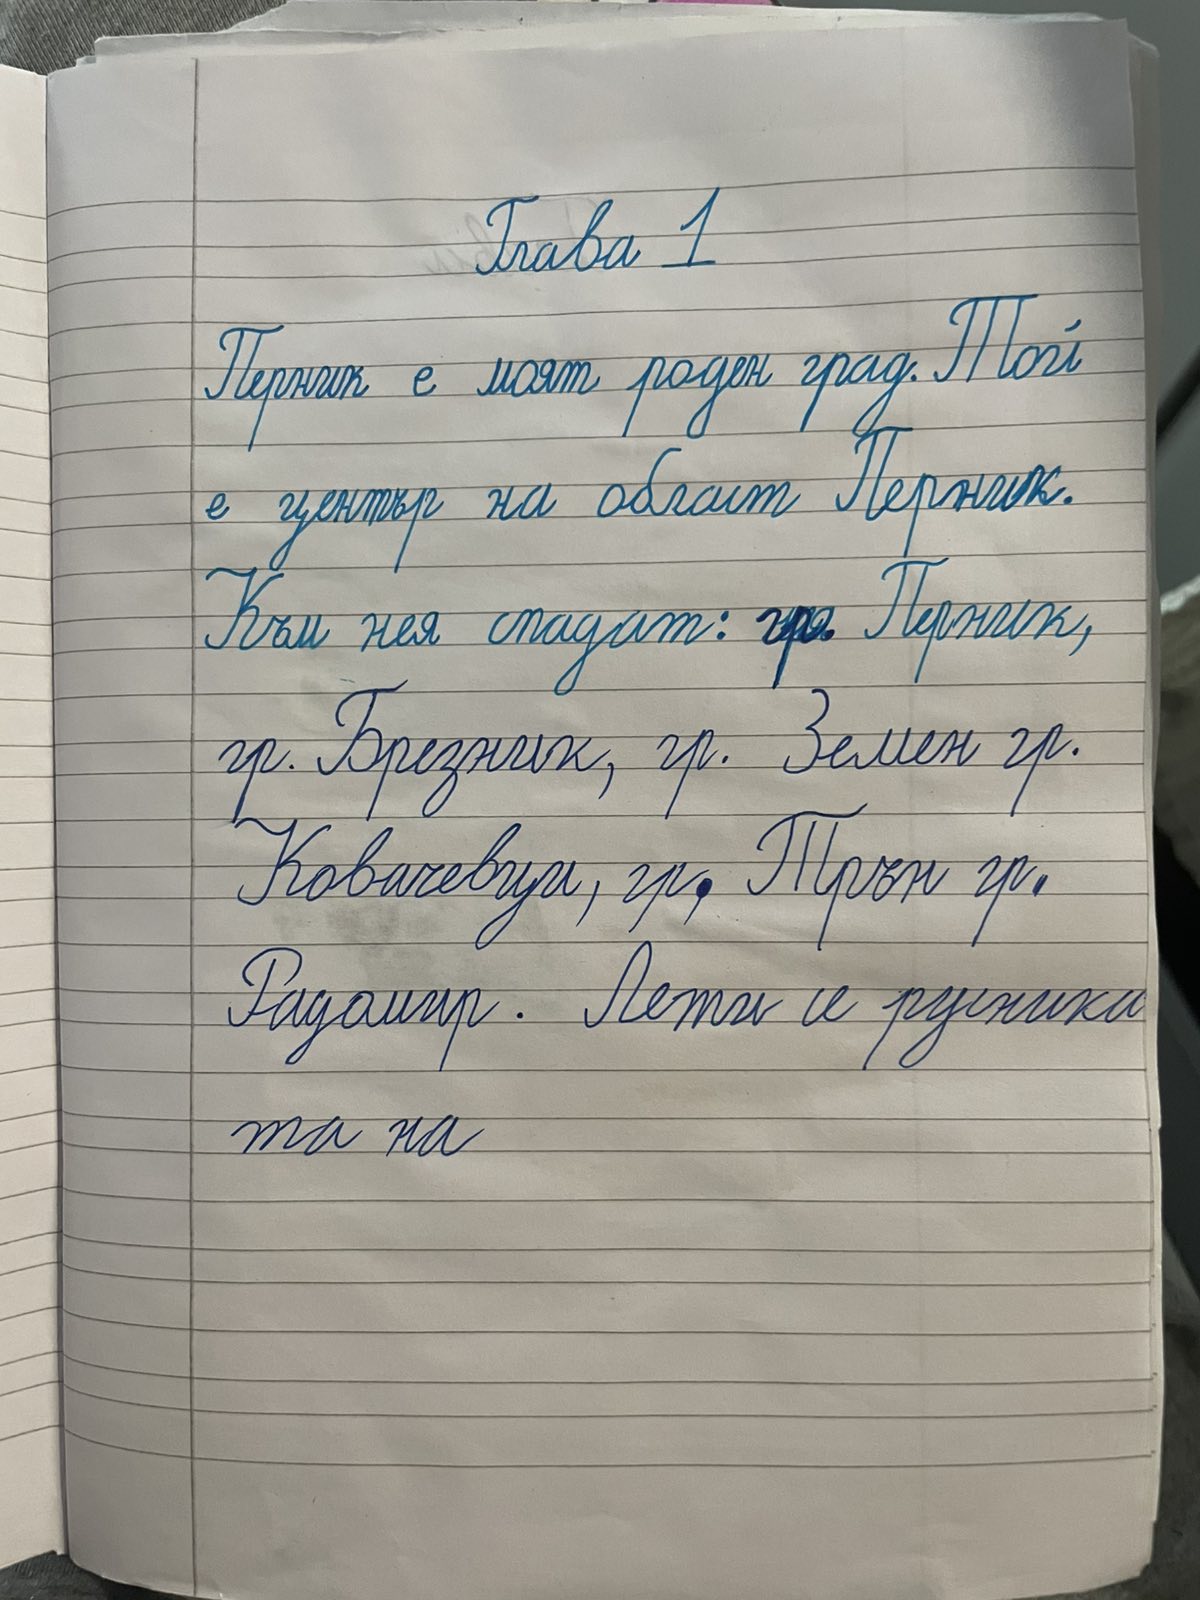 Глава 1
Перник е моят роден град. Той
е център на област Перник.
Към нея спадат: гр. Перник,
гр. Брезник, гр. Земен гр.
Ковачевци, гр. Трън гр.
Радомир. Лети се русника
та на